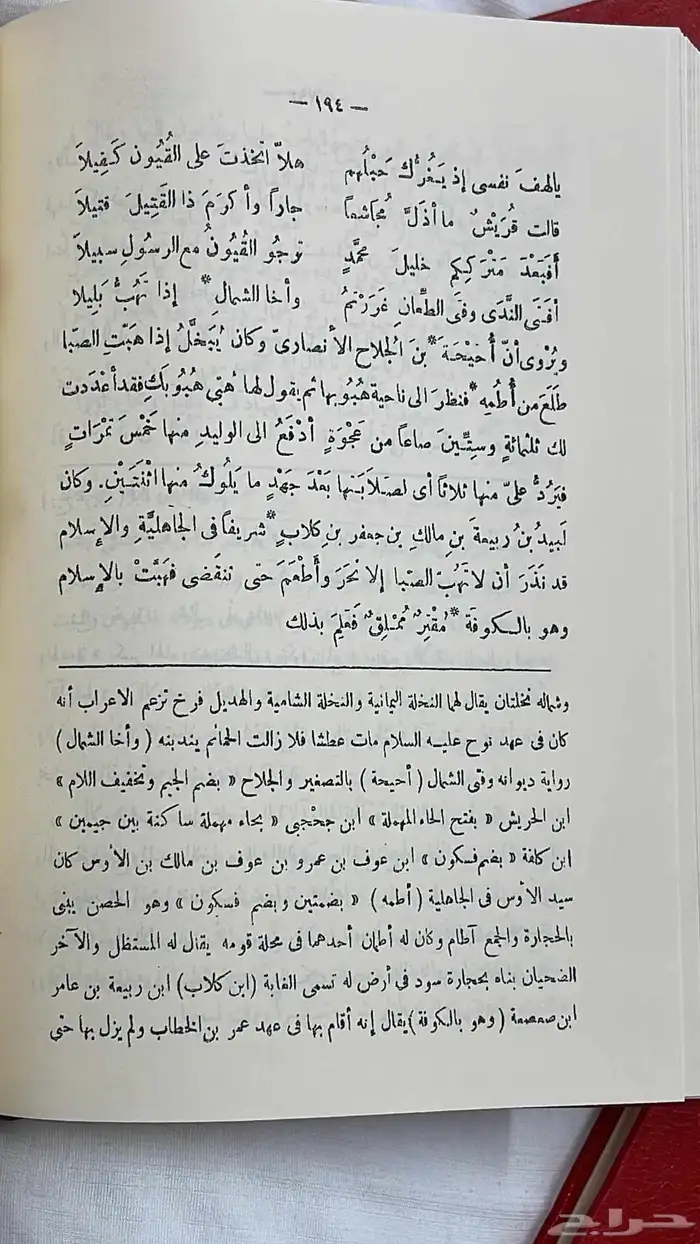 — ١٩٤ —
يالهفَ نفسى إذ يَغُرُّك حَبْلُهم هلاّ اتخذتَ على القُيُون كَفِيلاَ
قالت قُرَيْشٌ ما أذَلَّ مُجَاشعاً جاراً وأكرَمَ ذا القَتِيلَ قتيلاَ
أفَبَعْدَ مَتْرَكِكِم خليلَ محمَّدٍ ترجُو القُيُونُ مع الرسُولِ سبيلاَ
أفَتَى النَّدَى وفتَى الطِّعانِ غَرَرْتمُ وأخا الشمالِ* إذا تَهُبُّ بَلِيلا
ويُرْوى أنّ أُحَيْحَةَ* بنَ الجُلاح الأنصارىَّ وكان يُبَخَّلُ إذا هَبَّتِ الصَّبا
طَلَعَ من أُطُمِه* فنظرَ الى ناحية هُبُوبها ثم يقول لها هُبّى هُبُوبَكِ فقد أعْدَدت
لك ثلثمائةٍ وسِتِّينَ صاعاً من عَجْوَةٍ أدْفَعُ الى الوليدِ منها خَمْسَ تَمْرَاتٍ
فيَرُدُّ علىّ منها ثلاثاً أى لصَلاَبَتها بَعْدَ جَهْدٍ ما يَلُوكُ منها اثْنَتَيْنِ. وكان
لَبيدُ بنُ ربيعةَ بنِ مالكِ بن جعفر بنِ كلابٍ* شريفاً فى الجاهليَّةِ والإسلام
قد نَذَرَ أن لا تَهُبَّ الصَّبا إلا نَحَرَ وأطْعَمَ حتى تنقضى فهَبَّتْ بالإسلام
وهو بالكوفة* مُقْتِرٌ مُمْلِقٌ فَعَلِمَ بذلك
وشماله نخلتان يقال لهما النخلة اليمانية والنخلة الشامية والهديل فرخ تزعم الاعراب أنه
كان فى عهد نوح عليه السلام مات عطشا فلا زالت الحمائم يندبنه ( وأخا الشمال )
رواية ديوانه وفتى الشمال ( أحيحة ) بالتصغير والجلاح « بضم الجيم وتخفيف اللام »
ابن الحريش « بفتح الحاء المهملة » ابن جحجبى « بحاء مهملة ساكنة بين جيمين »
ابن كلفة « بضم فسكون » ابن عوف بن عمرو بن عوف بن مالك بن الأوس كان
سيد الأوس فى الجاهلية ( أطمه ) « بضمتين وبضم فسكون » وهو الحصن يبنى
بالحجارة والجمع آطام وكان له أطمان أحدهما فى محلة قومه يقال له المستظل والآخر
الضحيان بناه بحجارة سود فى أرض له تسمى الغابة (ابن كلاب) ابن ربيعة بن عامر
ابن صعصعة ( وهو بالكوفة )يقال إنه أقام بها فى عهد عمر بن الخطاب ولم يزل بها حتى
حراج